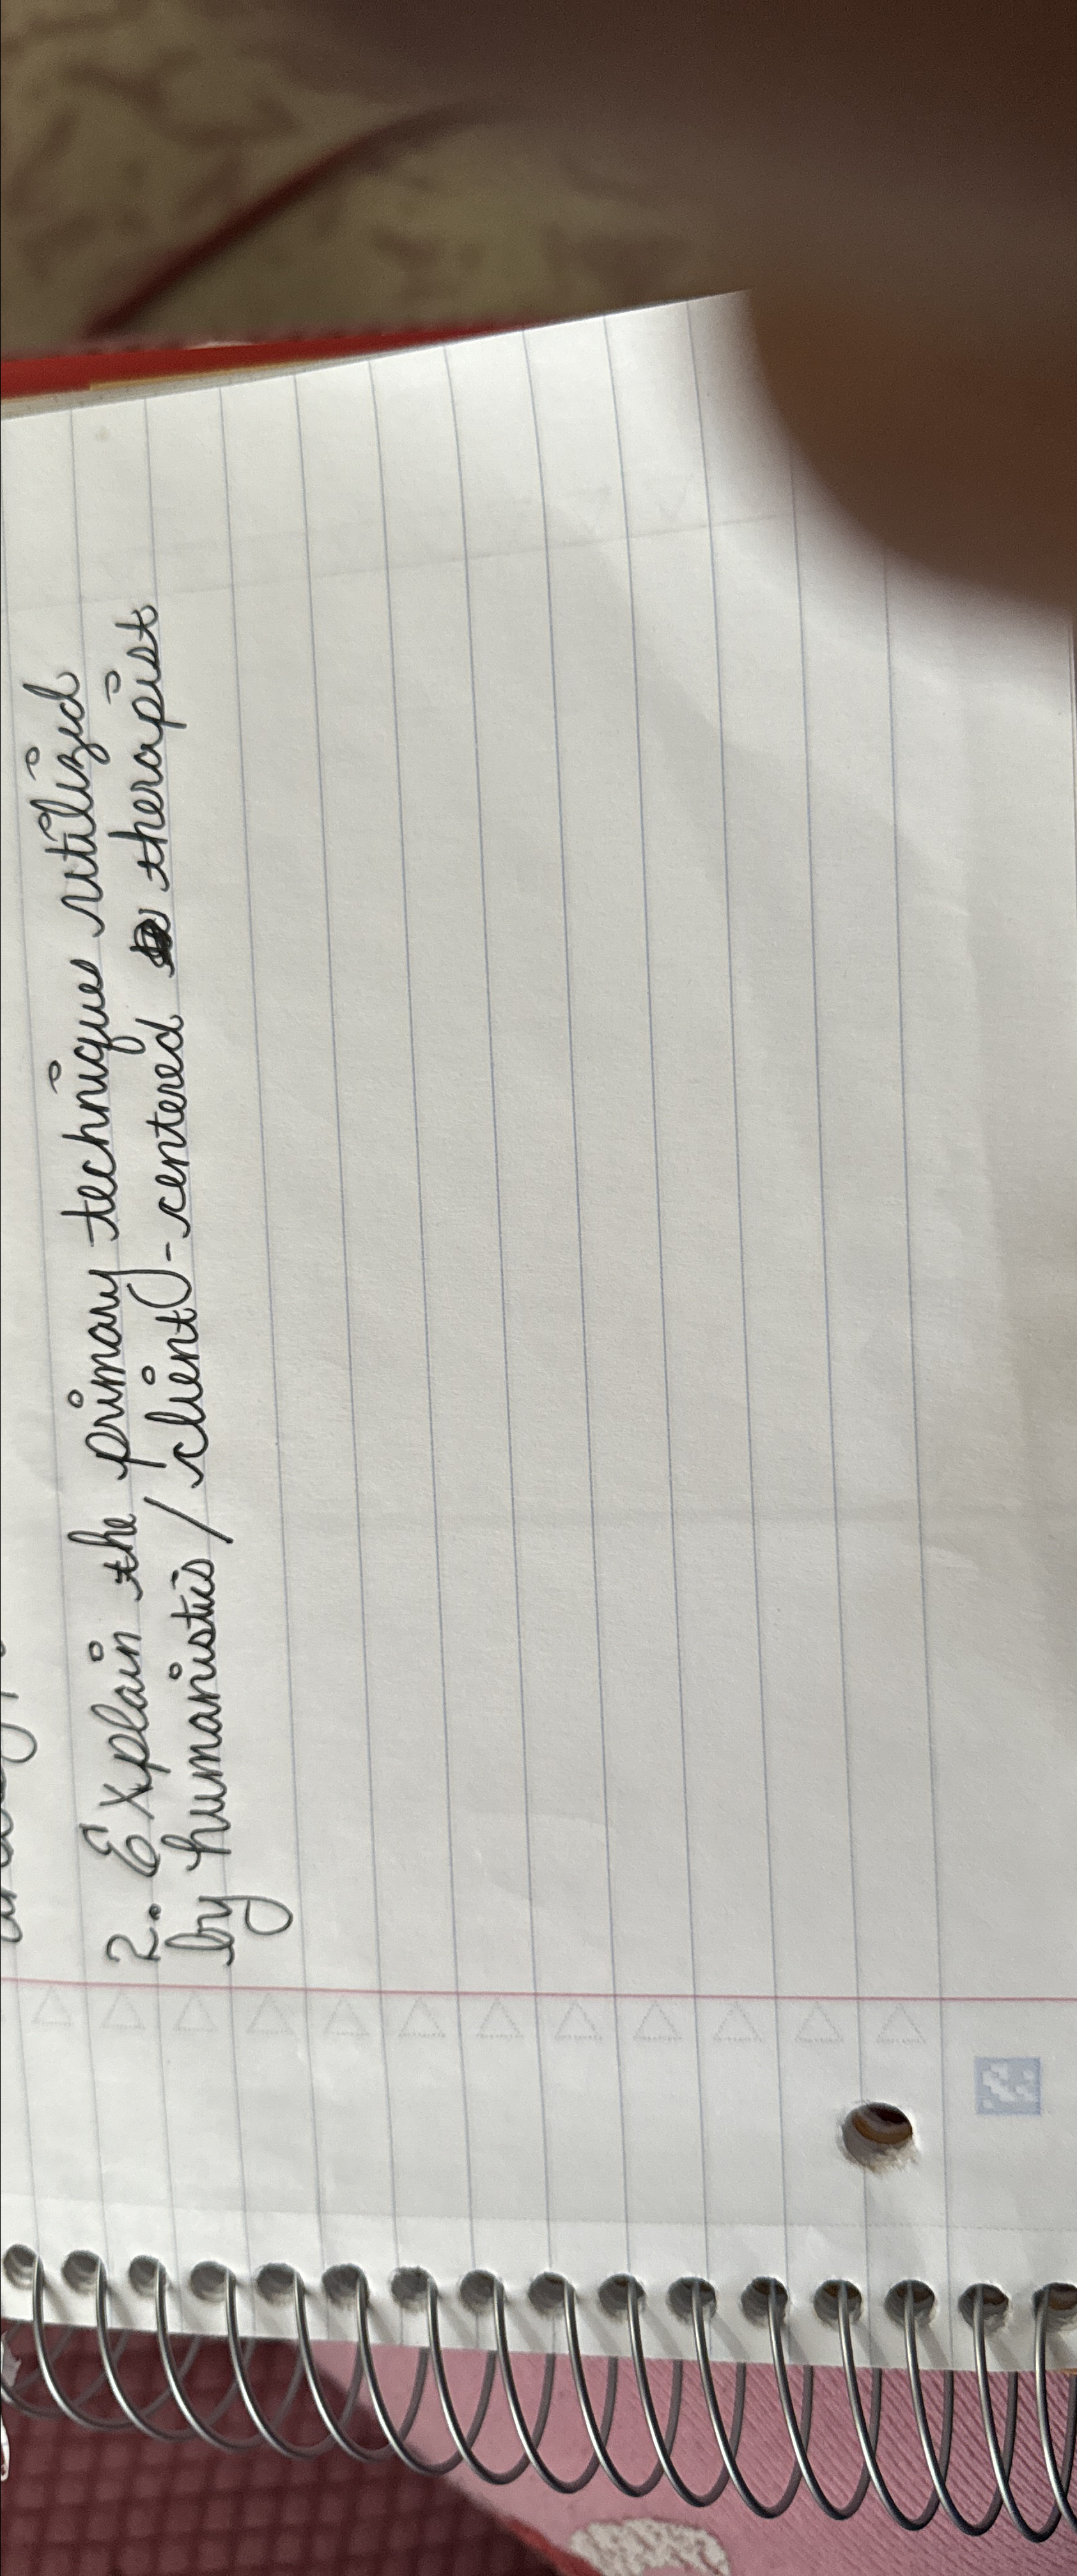 2. Explain the primary techniques utilized
by humanistic / client-centered therapist